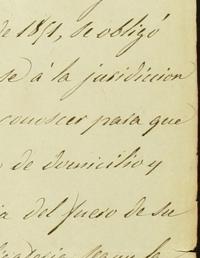 de 1851, se obligó
se á la jurisdiccion
conocer para que
de domicilio y
del fuero de su